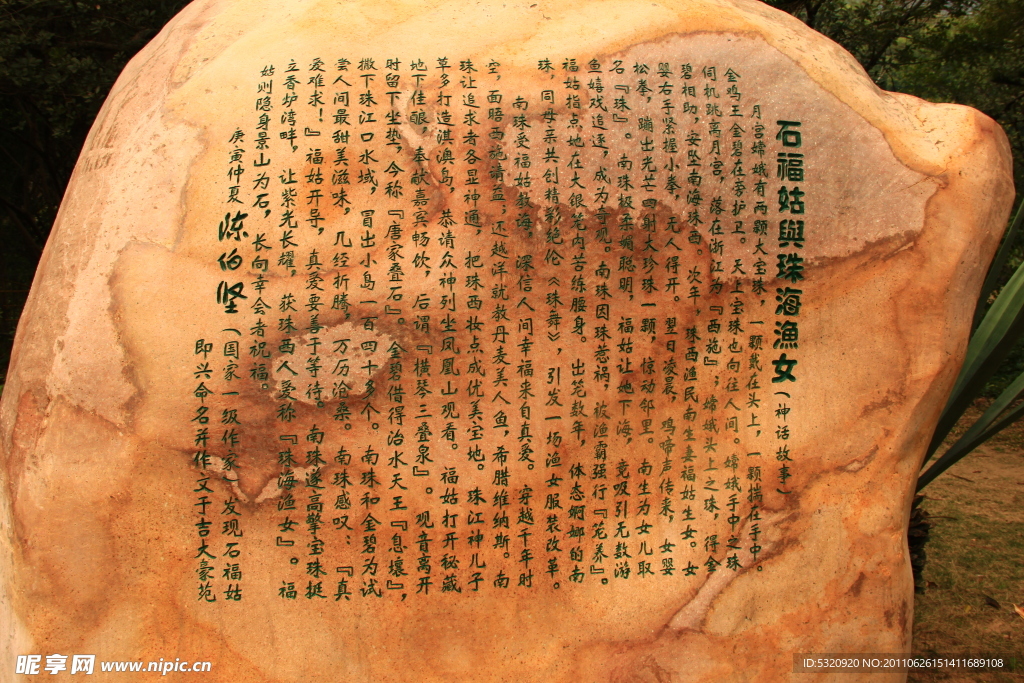 石福姑與珠海漁女（神话故事）
月宫嫦娥有两颗大宝珠，一颗戴在头上，一颗揣在手中。
金鸡王金碧在旁护卫。天上宝珠也向往人间。嫦娥手中之珠
伺机跳离月宫，落在浙江为『西施』；嫦娥头上之珠，得金
碧相助，安坠南海珠西。次年，珠西渔民南生妻福姑生女。女
婴右手紧握小拳，无人得开。翌日凌晨，鸡啼声传来，女婴
松拳，蹦出光芒四射大珍珠一颗，惊动邻里。南生为女儿取
名『珠』。南珠极柔痴聪明，福姑让她下海，竟吸引无数游
鱼嬉戏追逐，成为奇观。南珠因珠惹祸，被渔霸强行『笼养』。
福姑指点她在大银笼内苦练腰身。出笼数年，体态婀娜的南
珠，同母亲共创精彩绝伦《珠舞》，引发一场渔女服装改革。
南珠受福姑教海，深信人间幸福来自真爱。穿越千年时
空，面晤西施请益；还越洋就教丹麦美人鱼，希腊维纳斯。南
珠让追求者各显神通，把珠西妆点成优美宝地。珠江神儿子
草多打造淇澳岛，恭请众神列坐凤凰山观看。福姑打开秘藏
地下佳酿，奉献嘉宾畅饮，后谓『横琴三叠泉』。观音离开
时留下坐垫，今称『唐家叠石』。金碧借得治水天王『息壤』，
撒下珠江口水域，冒出小岛一百四十多个。南珠和金碧为试
尝人间最甜美滋味，几经折腾，万历沧桑。南珠感叹：『真
爱难求！』福姑开导，真爱要善于等待。南珠遂高擎宝珠挺
立香炉湾畔，让紫光长耀，获珠西人爱称『珠海渔女』。福
姑则隐身景山为石，长向幸会者祝福。
庚寅仲夏 陈伯坚（国家一级作家）发现石福姑
即兴命名并作文于吉大豪苑
昵享网 www.nipic.cn
ID:5320920 NO:20110626151411689108